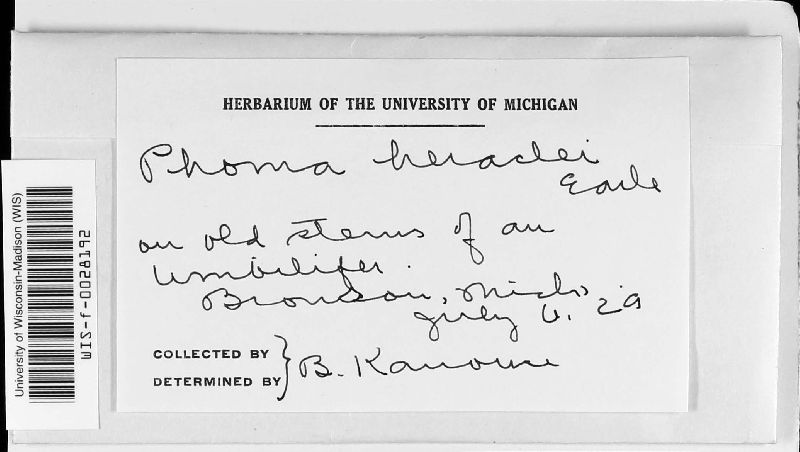 HERBARIUM OF THE UNIVERSITY OF MICHIGAN
Phoma heraclei
Earle
on old stems of an
Umbellifer.
Bronson, Mich.
July 6. 29
COLLECTED BY
DETERMINED BY
B. Kanouse
University of Wisconsin-Madison (WIS)
WIS-f-0028192